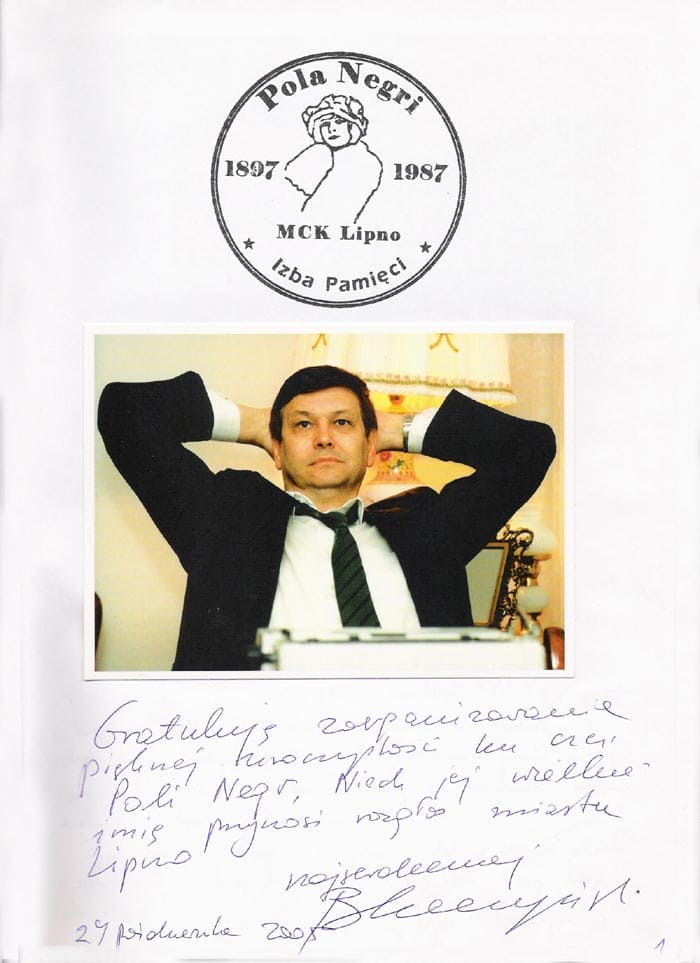 Pola Negri
1897 1987
MCK Lipno
★ Izba Pamięci ★
Gratuluję zorganizowania
pięknej uroczystości ku czci
Poli Negri, Niech jej wielkie
imię przynosi rozgłos miastu
Lipno
najserdeczniej
29 października
1